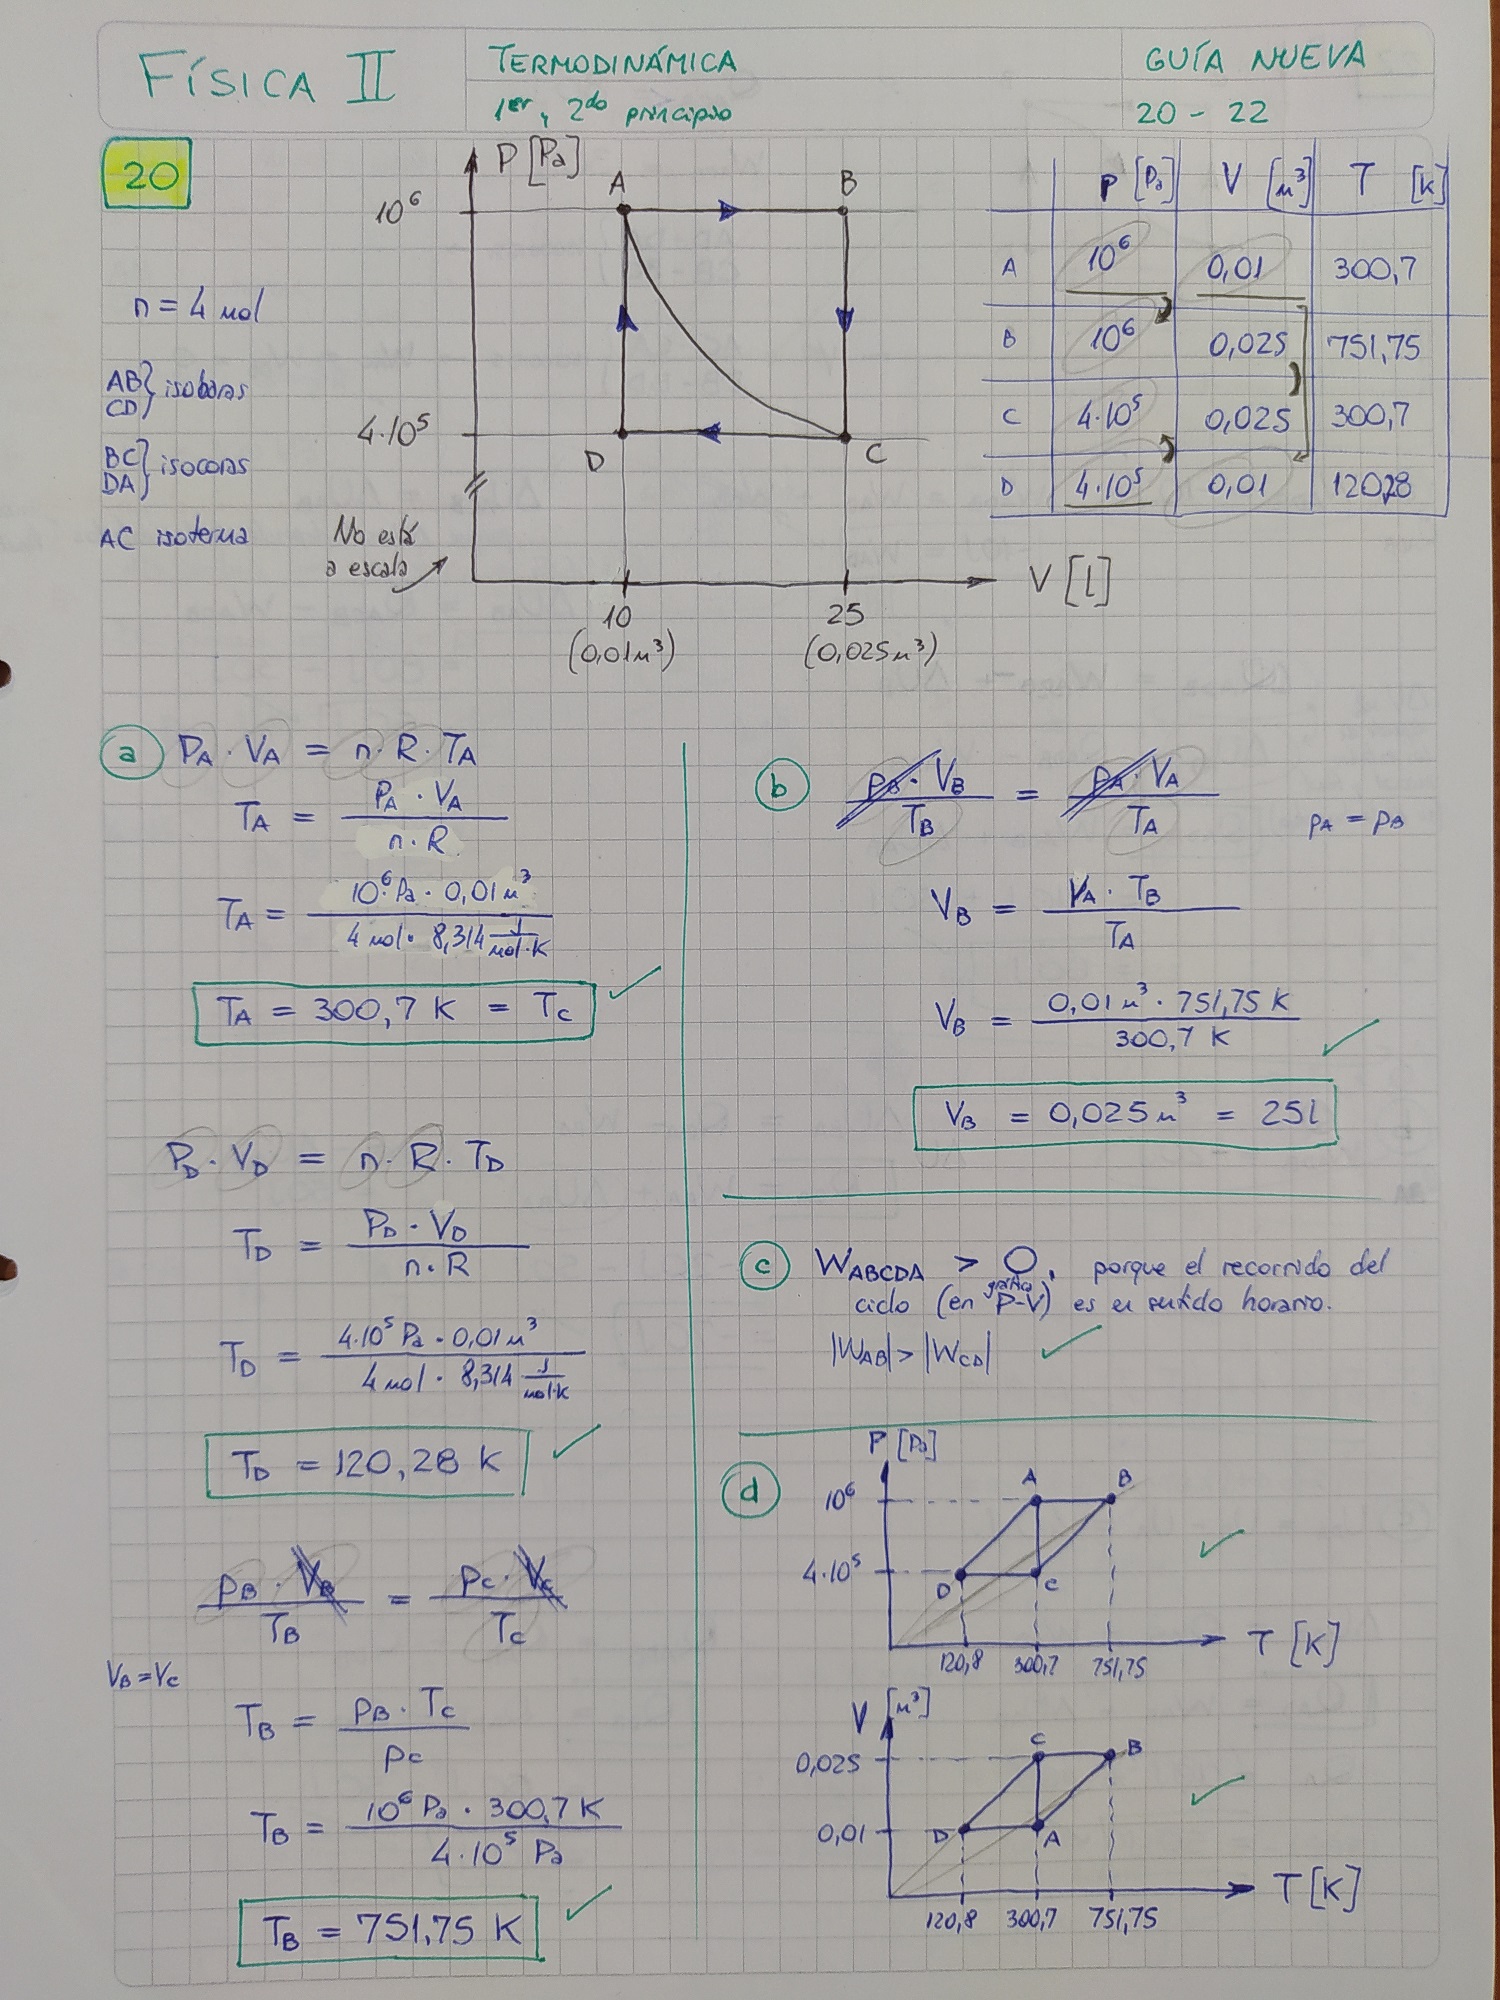 FÍSICA II
TERMODINÁMICA
1er y 2do principio
GUÍA NUEVA
20 - 22
20
n = 4 mol
AB} isobaras
CD}
BC} isocoras
DA}
AC isoterma
P [Pa]
A B
10⁶
4·10⁵
D C
No está
a escala
10 25
(0,01m³) (0,025m³)
V [l]
P [Pa] V [m³] T [K]
A 10⁶ 0,01 300,7
B 10⁶ 0,025 751,75
C 4·10⁵ 0,025 300,7
D 4·10⁵ 0,01 120,28
a PA · VA = n · R · TA
TA = PA · VA / n · R
TA = 10⁶ Pa · 0,01 m³ / 4 mol · 8,314 J/mol·K
TA = 300,7 K = TC
PD · VD = n · R · TD
TD = PD · VD / n · R
TD = 4·10⁵ Pa · 0,01 m³ / 4 mol · 8,314 J/mol·K
TD = 120,28 K
PB · VB / TB = PC · VC / TC
VB = VC
TB = PB · TC / PC
TB = 10⁶ Pa · 300,7 K / 4·10⁵ Pa
TB = 751,75 K
b PB · VB / TB = PA · VA / TA
PA = PB
VB = VA · TB / TA
VB = 0,01 m³ · 751,75 K / 300,7 K
VB = 0,025 m³ = 25 l
c WABCDA > 0, porque el recorrido del
ciclo (en gráfico P-V) es en sentido horario.
|WAB| > |WCD|
d
P [Pa]
A B
10⁶
4·10⁵
D C
T [K]
120,8 300,7 751,75
V [m³]
C B
0,025
0,01 D A
T [K]
120,8 300,7 751,75